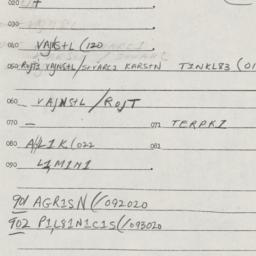 020
030
040 VAJNSTL (120
050 ROJTS VAJNSTL/SEVARCI KARSTN TINKL83 (01
060 VAJNSTL/ROJT
070 — 071 TERPKI
080 A/L1K (022 081
090 L1M1N1
901 AGRISN (/092020
902 P1L81N1C1S (/093020